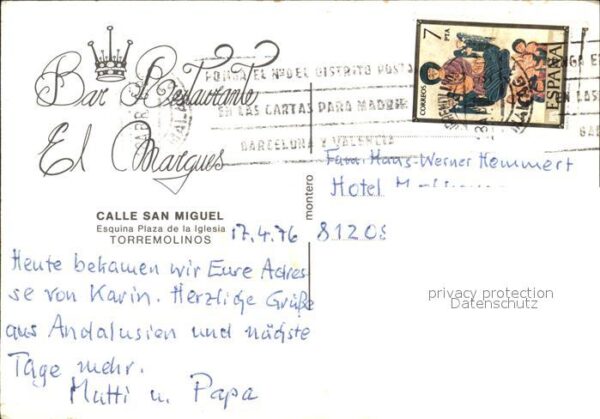 Bar Restaurante
El Marques
CALLE SAN MIGUEL
Esquina Plaza de la Iglesia
TORREMOLINOS
17.4.76
Heute bekamen wir Eure Adres
se von Karin. Herzliche Grüße
aus Andalusien und nächste
Tage mehr.
Mutti u. Papa
montero
7
PTA
CORREOS
ESPAÑA
PONGA EL Nº DEL DISTRITO POSTAL
EN LAS CARTAS PARA MADRID
BARCELONA Y VALENCIA
Fam. Hans-Werner Hemmert
Hotel
81208
privacy protection
Datenschutz